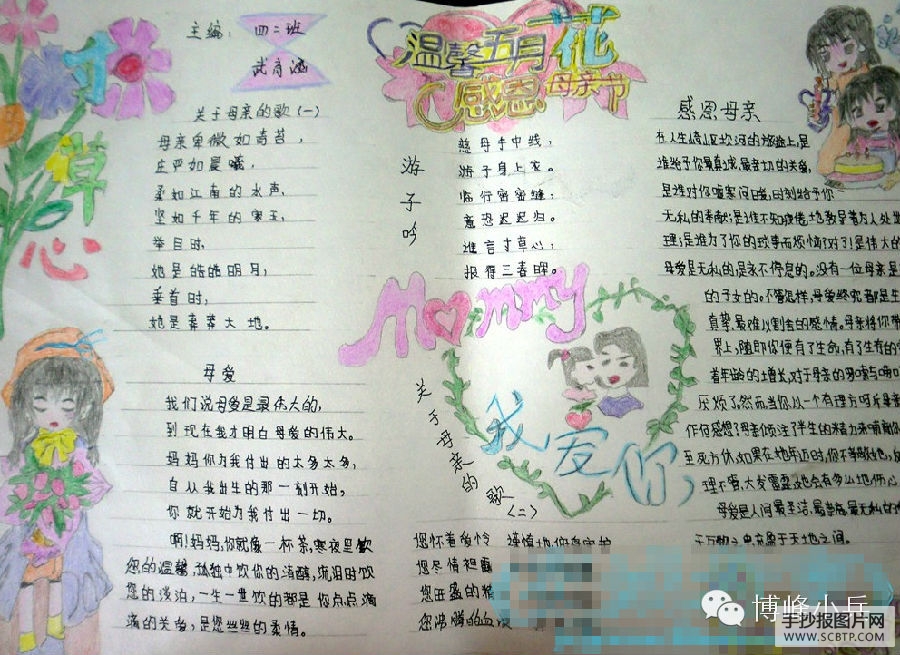 主编: 四二班
寸草心
温馨五月花
感恩母亲节
关于母亲的歌(一)
母亲卑微如青苔,
庄严如晨曦,
柔如江南的水声,
坚如千年的寒玉,
举目时,
她是皓皓明月,
垂首时,
她是莽莽大地。
母爱
我们说母爱是最伟大的,
到现在我才明白母爱的伟大。
妈妈你为我付出的太多太多,
自从我出生的那一刻开始,
你就开始为我付出一切。
啊!妈妈,你就像一杯茶,寒夜里饮
您的温馨,孤独中饮你的清醇,
您的淡泊,一生一世饮的都是你点点滴
滴的关爱,是您丝丝的柔情。
游子吟
慈母手中线,
游子身上衣。
临行密密缝,
意恐迟迟归。
谁言寸草心,
报得三春晖。
Mommy
我爱你,
关于母亲的歌(二)
您怀着爱怜
您尽情袒露
您旺盛的精
感恩母亲
在人生
谁给予你最真诚、最亲切的关爱,
是谁对你嘘寒问暖,时刻给予你
无私的奉献;是谁不知疲倦地教导着为人处世
理;是谁为了你的琐事而烦恼?对了!是伟大的
母爱是无私的是永不停息的。没有一位母亲是
的子女的。不管怎样,母爱终究都是
真挚、最难以割舍的感情。母亲将你带
界上,随即你便有了生命,有了生存的
着年龄的增长,对于母亲的
厌烦了,然而当你以一个有理
母爱是人间最圣洁、最崇高、最无私的
于万物之中,充盈于天地之间。
博峰小兵
手抄报图片网
WWW.SCBTP.COM